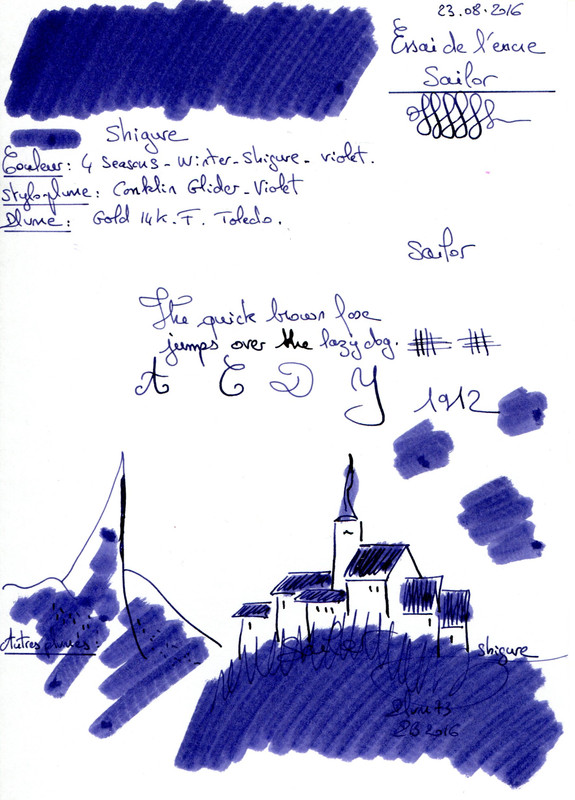 23.08.2016
Essai de l'encre
Sailor
Shigure
Couleur: 4 Seasons - Winter - Shigure - violet.
Stylo-plume: Conklin Glider - Violet
Plume: Gold 14K. F. Toledo.
Sailor
The quick brown foxe
jumps over the lazy dog.
A C D Y
1912
Autres plumes:
Shigure
2016